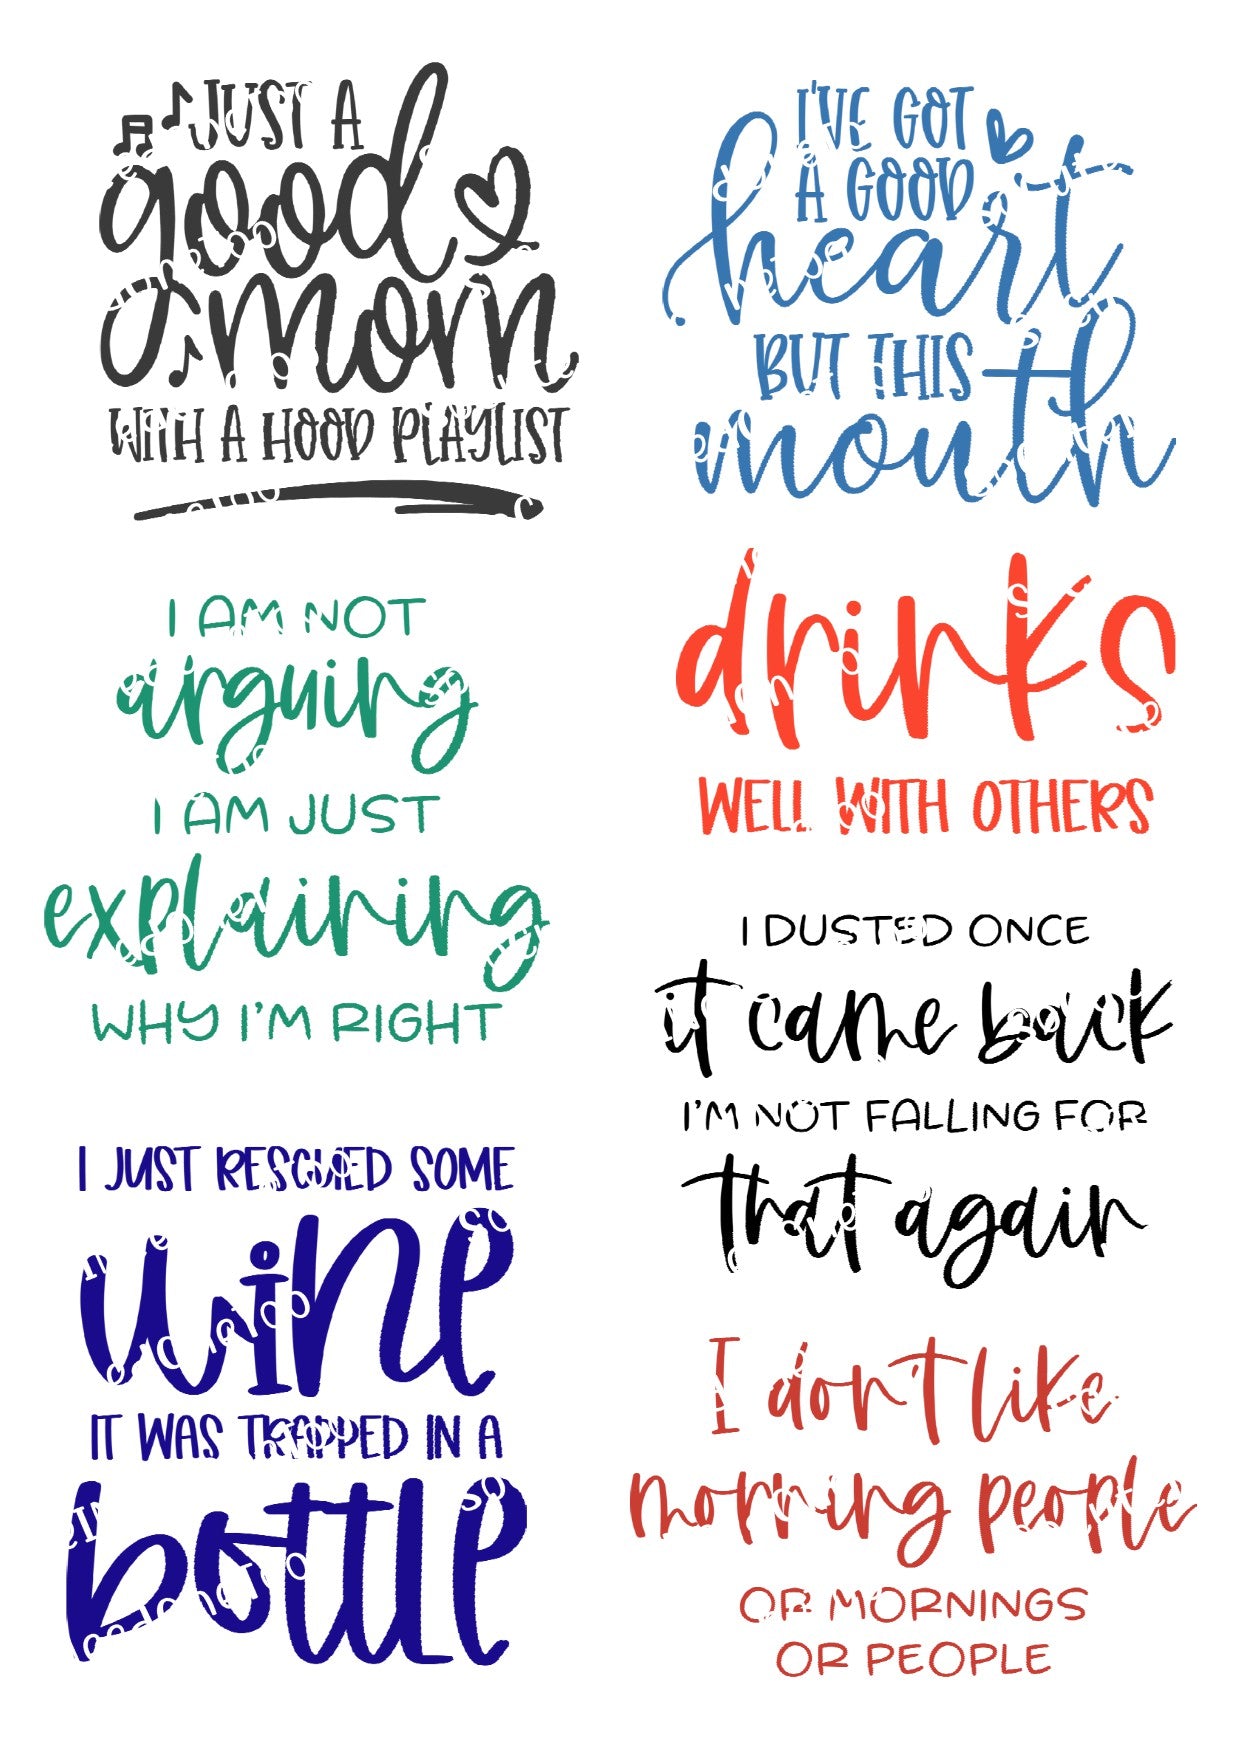 JUST A
good
mom
WITH A HOOD PLAYLIST
I'VE GOT
A GOOD
heart
BUT THIS
mouth
I AM NOT
arguing
I AM JUST
explaining
WHY I'M RIGHT
drinks
WELL WITH OTHERS
I DUSTED ONCE
it came back
I'M NOT FALLING FOR
that again
I JUST RESCUED SOME
wine
IT WAS TRAPPED IN A
bottle
I don't like
morning people
OR MORNINGS
OR PEOPLE